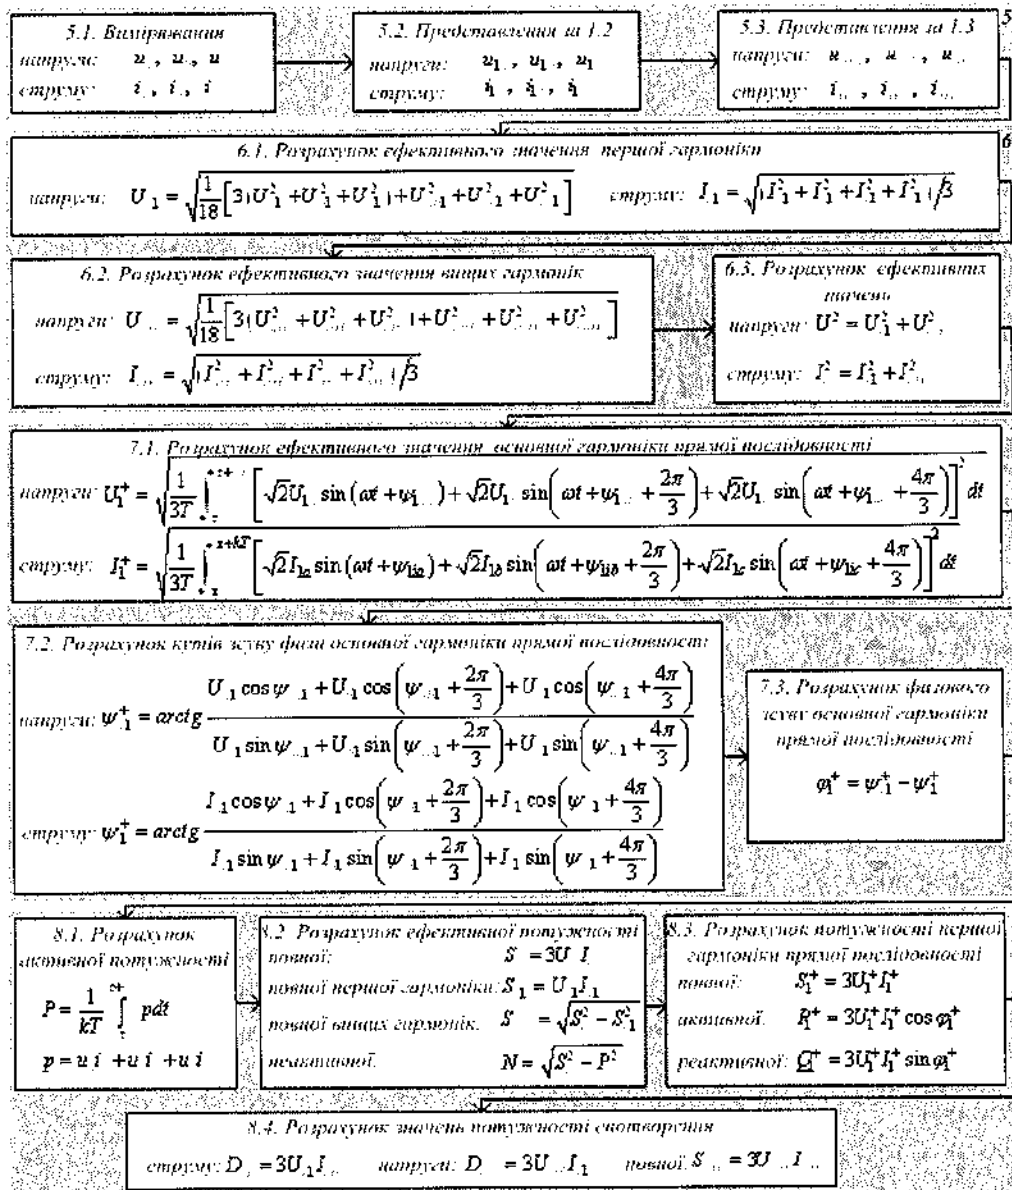 5.1. Вимірювання
напруги: u, u, u
струму: i, i, i
5.2. Представлення за 1.2
напруги: u₁, u₁, u₁
струму: i₁, i₁, i₁
5.3. Представлення за 1.3
напруги: u, u, u
струму: i, i, i
5
6.1. Розрахунок ефективного значення першої гармоніки
6
напруги: U₁ = √(1/18[3(U²₁ + U²₁ + U²₁) + U²₁ + U²₁ + U²₁])
струму: I₁ = √((I²₁ + I²₁ + I²₁ + I²₁)/3)
6.2. Розрахунок ефективного значення вищих гармонік
напруги: U = √(1/18[3(U² + U² + U²) + U² + U² + U²])
струму: I = √((I² + I² + I² + I²)/3)
6.3. Розрахунок ефективних
значень
напруги: U² = U²₁ + U²
струму: I² = I²₁ + I²
7.1. Розрахунок ефективного значення основної гармоніки прямої послідовності
напруги: U₁⁺ = √(1/3T ∫ [√2U₁ sin(ωt + ψ₁) + √2U₁ sin(ωt + ψ₁ + 2π/3) + √2U₁ sin(ωt + ψ₁ + 4π/3)]² dt
струму: I₁⁺ = √(1/3T ∫ τ τ+kT [√2I₁ₐ sin(ωt + ψ₁ᵢₐ) + √2I₁ᵦ sin(ωt + ψ₁ᵢᵦ + 2π/3) + √2I₁c sin(ωt + ψ₁ᵢc + 4π/3)]² dt
7.2. Розрахунок кутів зсуву фази основної гармоніки прямої послідовності
напруги: ψ₁⁺ = arctg (U₁ cos ψ₁ + U₁ cos(ψ₁ + 2π/3) + U₁ cos(ψ₁ + 4π/3)) / (U₁ sin ψ₁ + U₁ sin(ψ₁ + 2π/3) + U₁ sin(ψ₁ + 4π/3))
струму: ψ₁⁺ = arctg (I₁ cos ψ₁ + I₁ cos(ψ₁ + 2π/3) + I₁ cos(ψ₁ + 4π/3)) / (I₁ sin ψ₁ + I₁ sin(ψ₁ + 2π/3) + I₁ sin(ψ₁ + 4π/3))
7.3. Розрахунок фазового
зсуву основної гармоніки
прямої послідовності
φ₁⁺ = ψ₁⁺ − ψ₁⁺
8.1. Розрахунок
активної потужності
P = 1/kT ∫ pdt
p = u i + u i + u i
8.2 Розрахунок ефективної потужності
повної: S = 3U I
повної першої гармоніки: S₁ = U₁I₁
повної вищих гармонік. S = √(S² − S²₁)
неактивної. N = √(S² − P²)
8.3. Розрахунок потужності першої
гармоніки прямої послідовності
повної: S₁⁺ = 3U₁⁺I₁⁺
активної. P₁⁺ = 3U₁⁺I₁⁺ cos φ₁⁺
реактивної: Q₁⁺ = 3U₁⁺I₁⁺ sin φ₁⁺
8.4. Розрахунок значень потужності спотворення
струму: D = 3U₁I напруги: D = 3U I₁ повної. S = 3U I